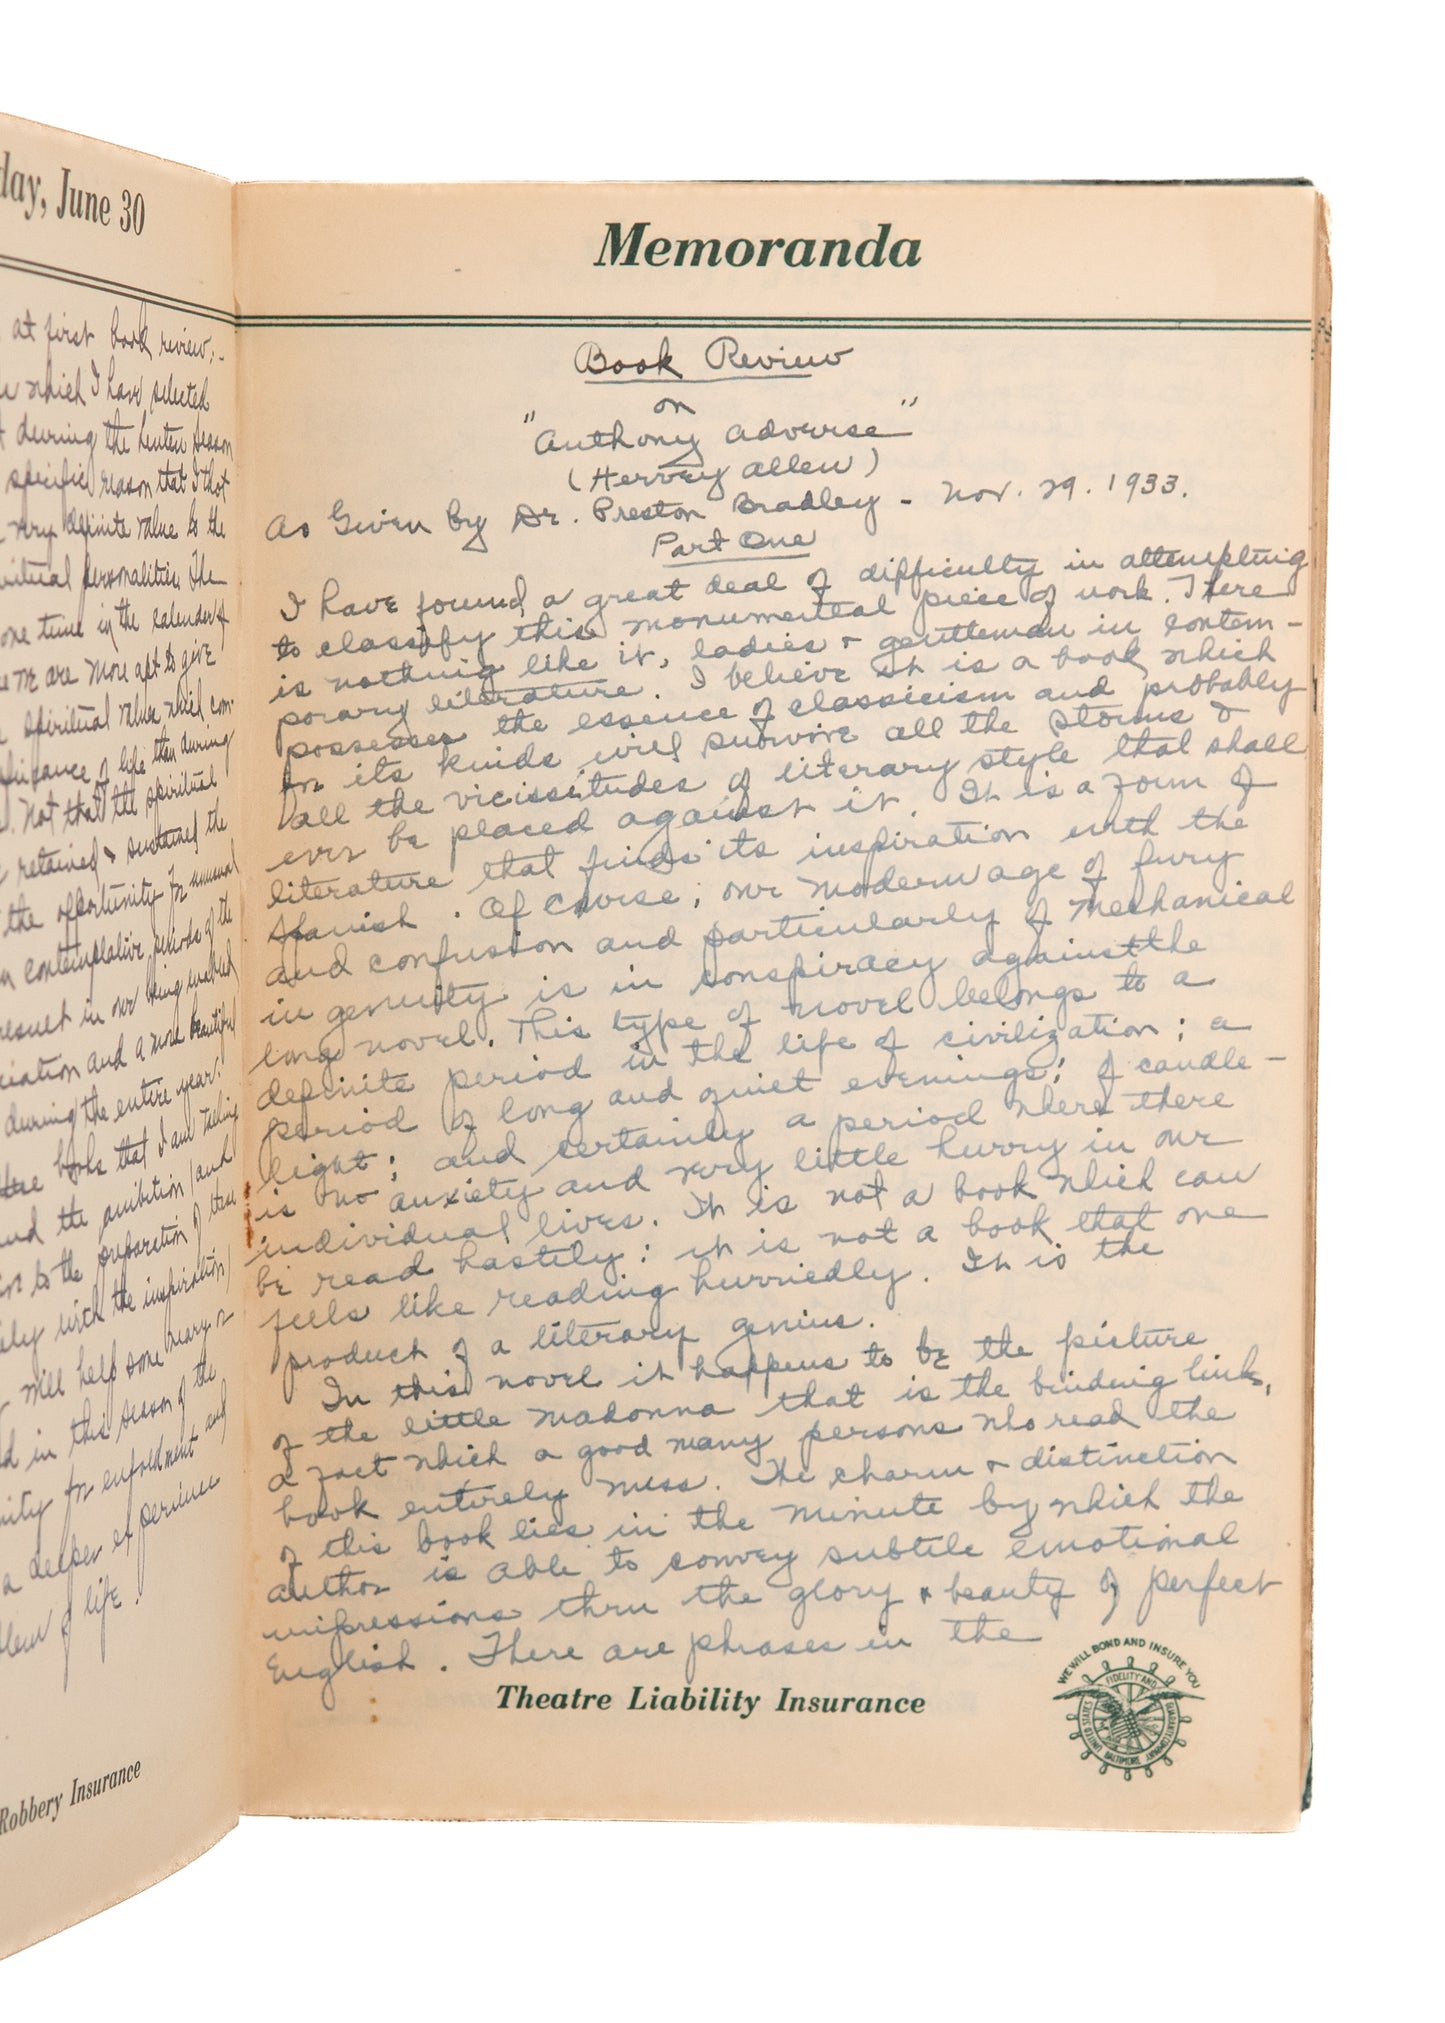 day, June 30
at first book review;-
which I have selected
during the lenten season
specific reason that I that
very definite value to the
spiritual personalities. The
one time in the calendar of
we are more apt to give
spiritual value which com-
of life than during
. Not that the spiritual
retained & sustained the
the opportunity for unusual
contemplative periods of the
result in our being
and a more beautiful
during the entire year.
books that I am taking
and the ambition (and
to the preparation of these
with the inspiration)
will help some weary or
in this season of the
for enfoldment and
a deeper experience
of life.
Robbery Insurance
Memoranda
Book Review
on
"Anthony Adverse"
(Hervey Allen)
As Given by Dr. Preston Bradley - Nov. 29. 1933.
Part One
I have found a great deal of difficulty in attempting
to classify this monumental piece of work. There
is nothing like it, ladies & gentleman in contem-
porary literature. I believe it is a book which
possesses the essence of classicism and probably
in its kinds will survive all the storms &
all the vicissitudes of literary style that shall
ever be placed against it. It is a form of
literature that finds its inspiration with the
Spanish. Of course; our modern age of fury
and confusion and particularly of mechanical
ingenuity is in conspiracy against the
long novel. This type of novel belongs to a
definite period in the life of civilization; a
period of long and quiet evenings; of candle-
light; and certainly a period where there
is no anxiety and very little hurry in our
individual lives. It is not a book which can
be read hastily; it is not a book that one
feels like reading hurriedly. It is the
product of a literary genius.
In this novel it happens to be the picture
of the little madonna that is the binding link,
a fact which a good many persons who read the
book entirely miss. The charm & distinction
of this book lies in the minute by which the
author is able to convey subtile emotional
impressions thru the glory & beauty of perfect
English. There are phrases in the
Theatre Liability Insurance
WE WILL BOND AND INSURE YOU
UNITED STATES FIDELITY AND GUARANTY COMPANY
BALTIMORE